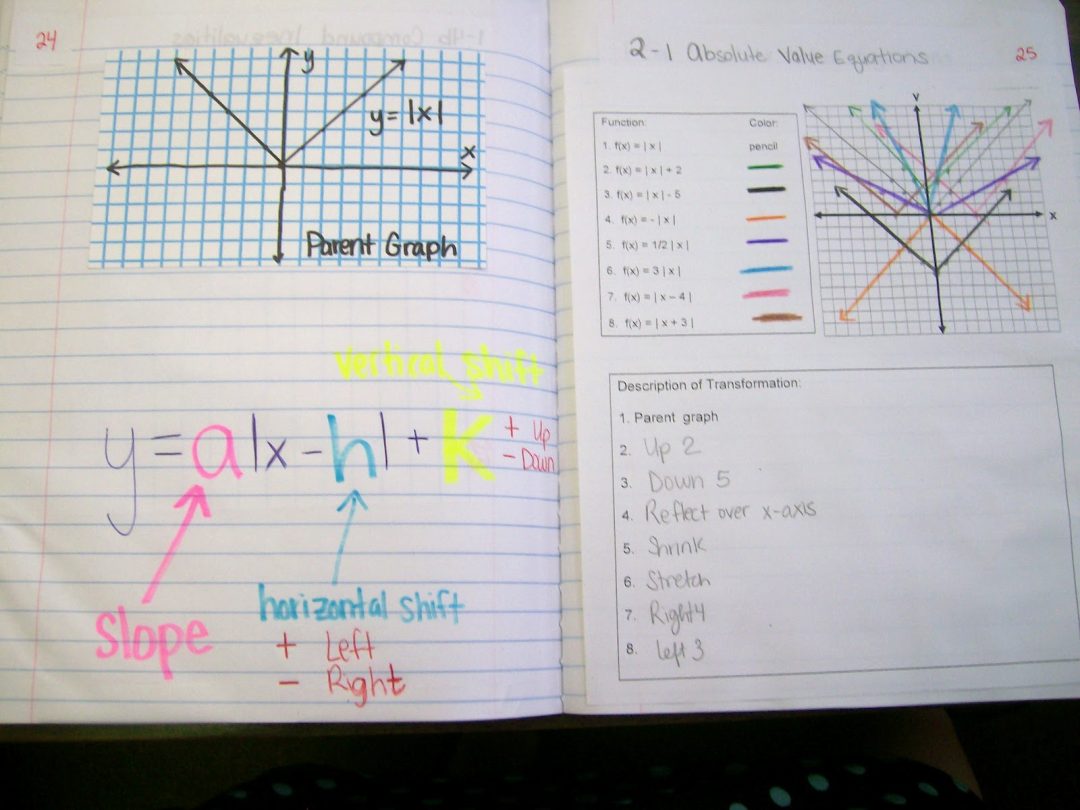 24
y
y = |x|
x
Parent Graph
vertical shift
y = a|x - h| + K
+ Up
- Down
Slope
horizontal shift
+ Left
- Right
2-1 Absolute Value Equations
25
Function: Color:
1. f(x) = | x | pencil
2. f(x) = | x | + 2
3. f(x) = | x | - 5
4. f(x) = - | x |
5. f(x) = 1/2 | x |
6. f(x) = 3 | x |
7. f(x) = | x – 4 |
8. f(x) = | x + 3 |
Y
X
Description of Transformation:
1. Parent graph
2. Up 2
3. Down 5
4. Reflect over x-axis
5. Shrink
6. Stretch
7. Right 4
8. Left 3